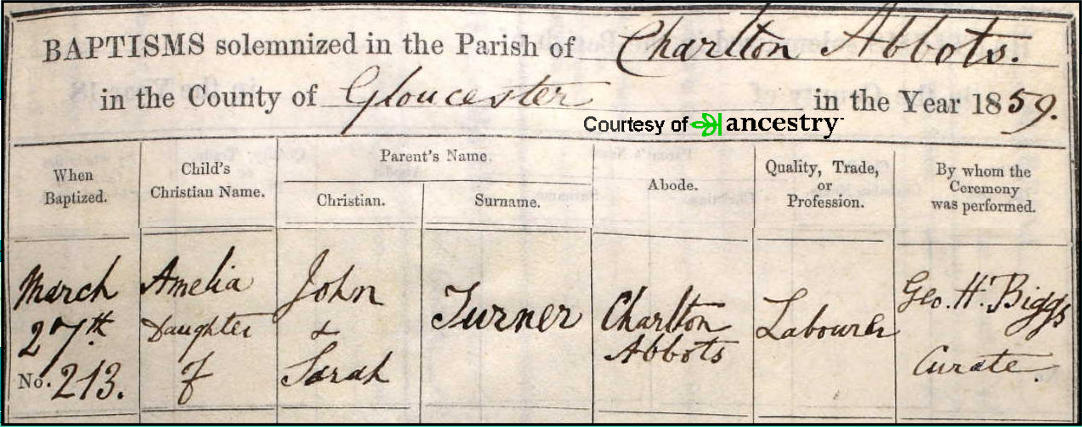 BAPTISMS solemnized in the Parish of Charlton Abbots.
in the County of Gloucester in the Year 1859.
Courtesy of ancestry
When Baptized.
Child's Christian Name.
Parent's Name.
Christian.
Surname.
Abode.
Quality, Trade, or Profession.
By whom the Ceremony was performed.
March
27th
No. 213.
Amelia
Daughter
of
John
&
Sarah
Turner
Charlton
Abbots
Labourer
Geo. H. Biggs
Curate.